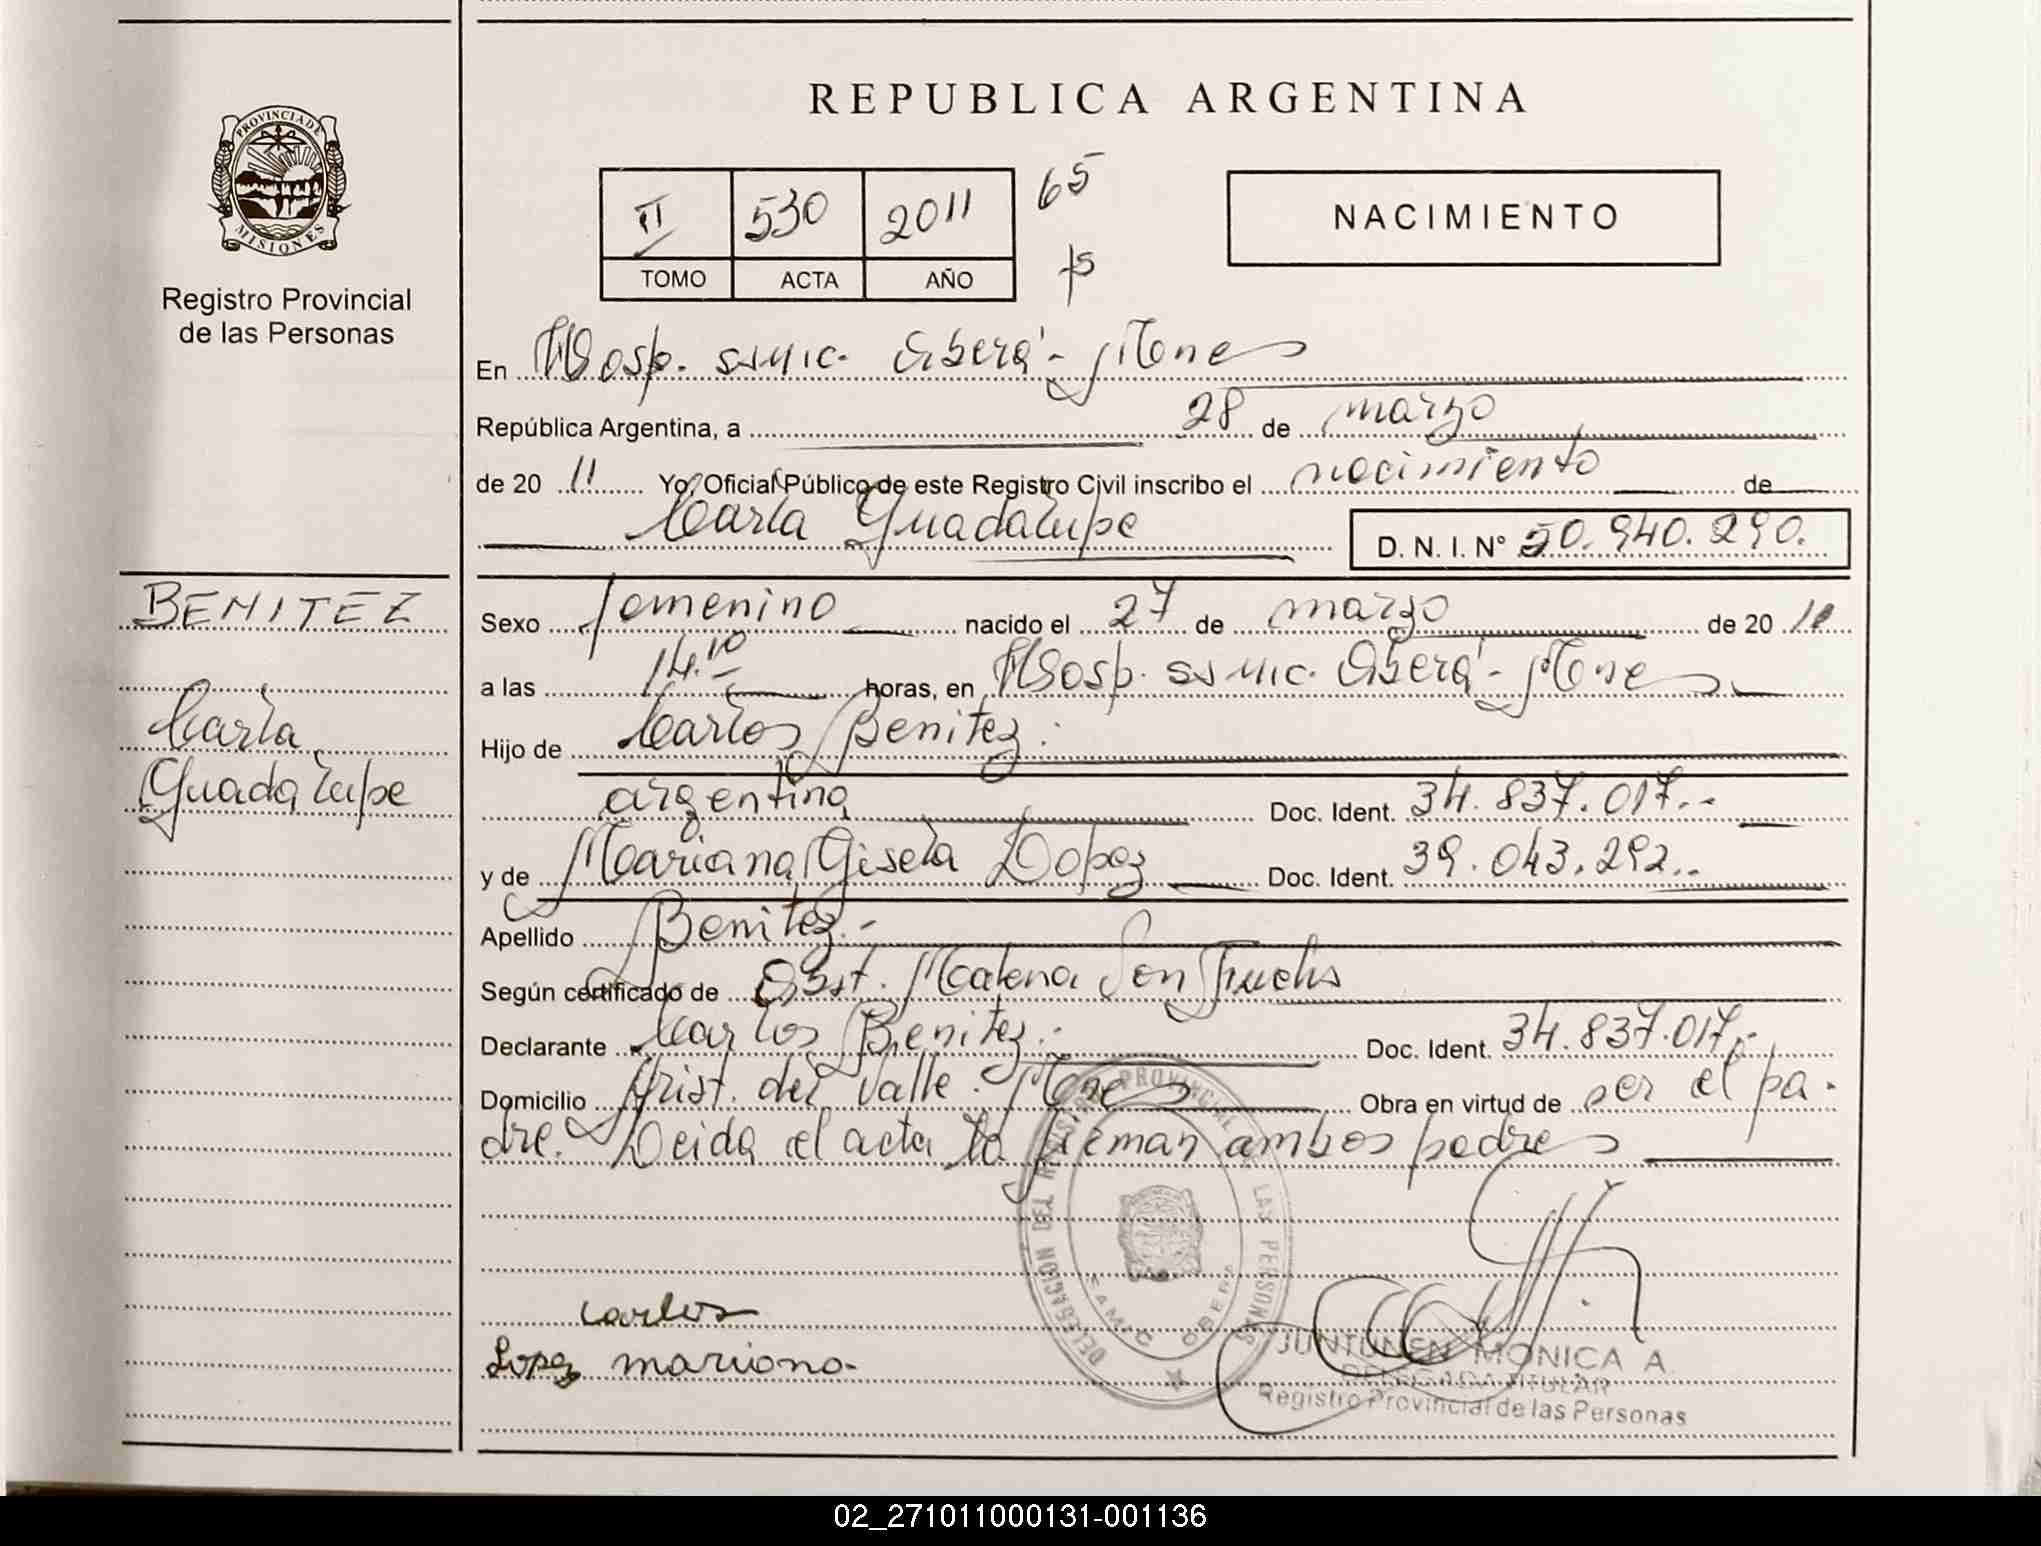 REPUBLICA ARGENTINA
PROVINCIA DE MISIONES
Registro Provincial
de las Personas
II 530 2011 65
TOMO ACTA AÑO
NACIMIENTO
En Hosp. ssmic. Oberá - Mones
República Argentina, a 28 de marzo
de 20 11 Yo, Oficial Público de este Registro Civil inscribo el nacimiento de
Carla Guadalupe
D. N. I. Nº 50.940.290.
BENITEZ
Carla
Guadalupe
Sexo femenino nacido el 27 de marzo de 20 11
a las 14.10 horas, en Hosp. ssmic. Oberá - Mones
Hijo de Carlos Benitez.
argentina Doc. Ident. 34.837.017.-
y de Mariana Gisela Lopez Doc. Ident. 39.043.292.-
Apellido Benitez.-
Según certificado de Obst. Malena Fuchs
Declarante Carlos Benitez.- Doc. Ident. 34.837.017.-
Domicilio Arist. del Valle. Mones Obra en virtud de ser el pa-
dre. Leida el acta la firman ambos padres
DELEGACION DEL REGISTRO PROVINCIAL DE LAS PERSONAS
SAMIC OBERA
Carlos
Lopez mariana
JUNTUNEN MONICA A.
DELEGADA TITULAR
Registro Provincial de las Personas
02_271011000131-001136